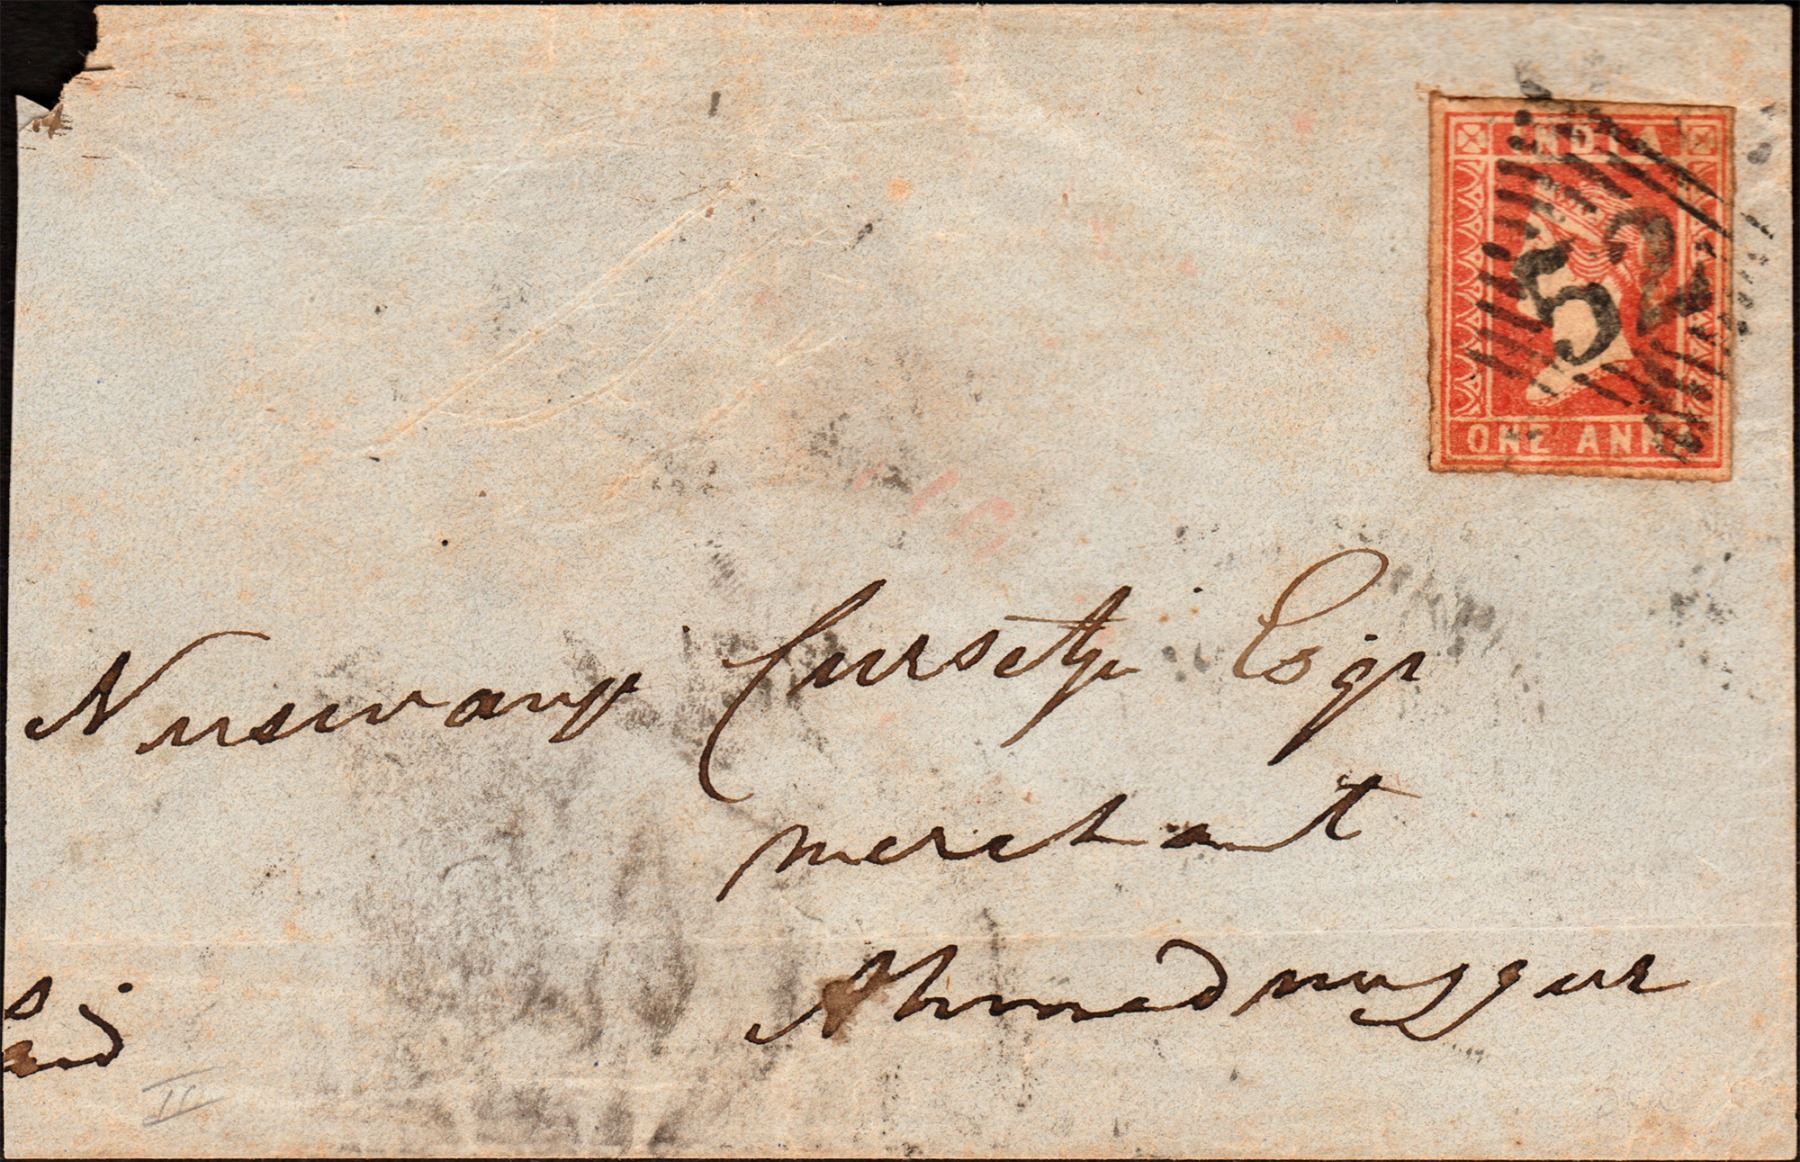 INDIA
52
ONE ANNA
Nuserwanji Cursetji Esqr
merchant
Ahmednuggur
aid